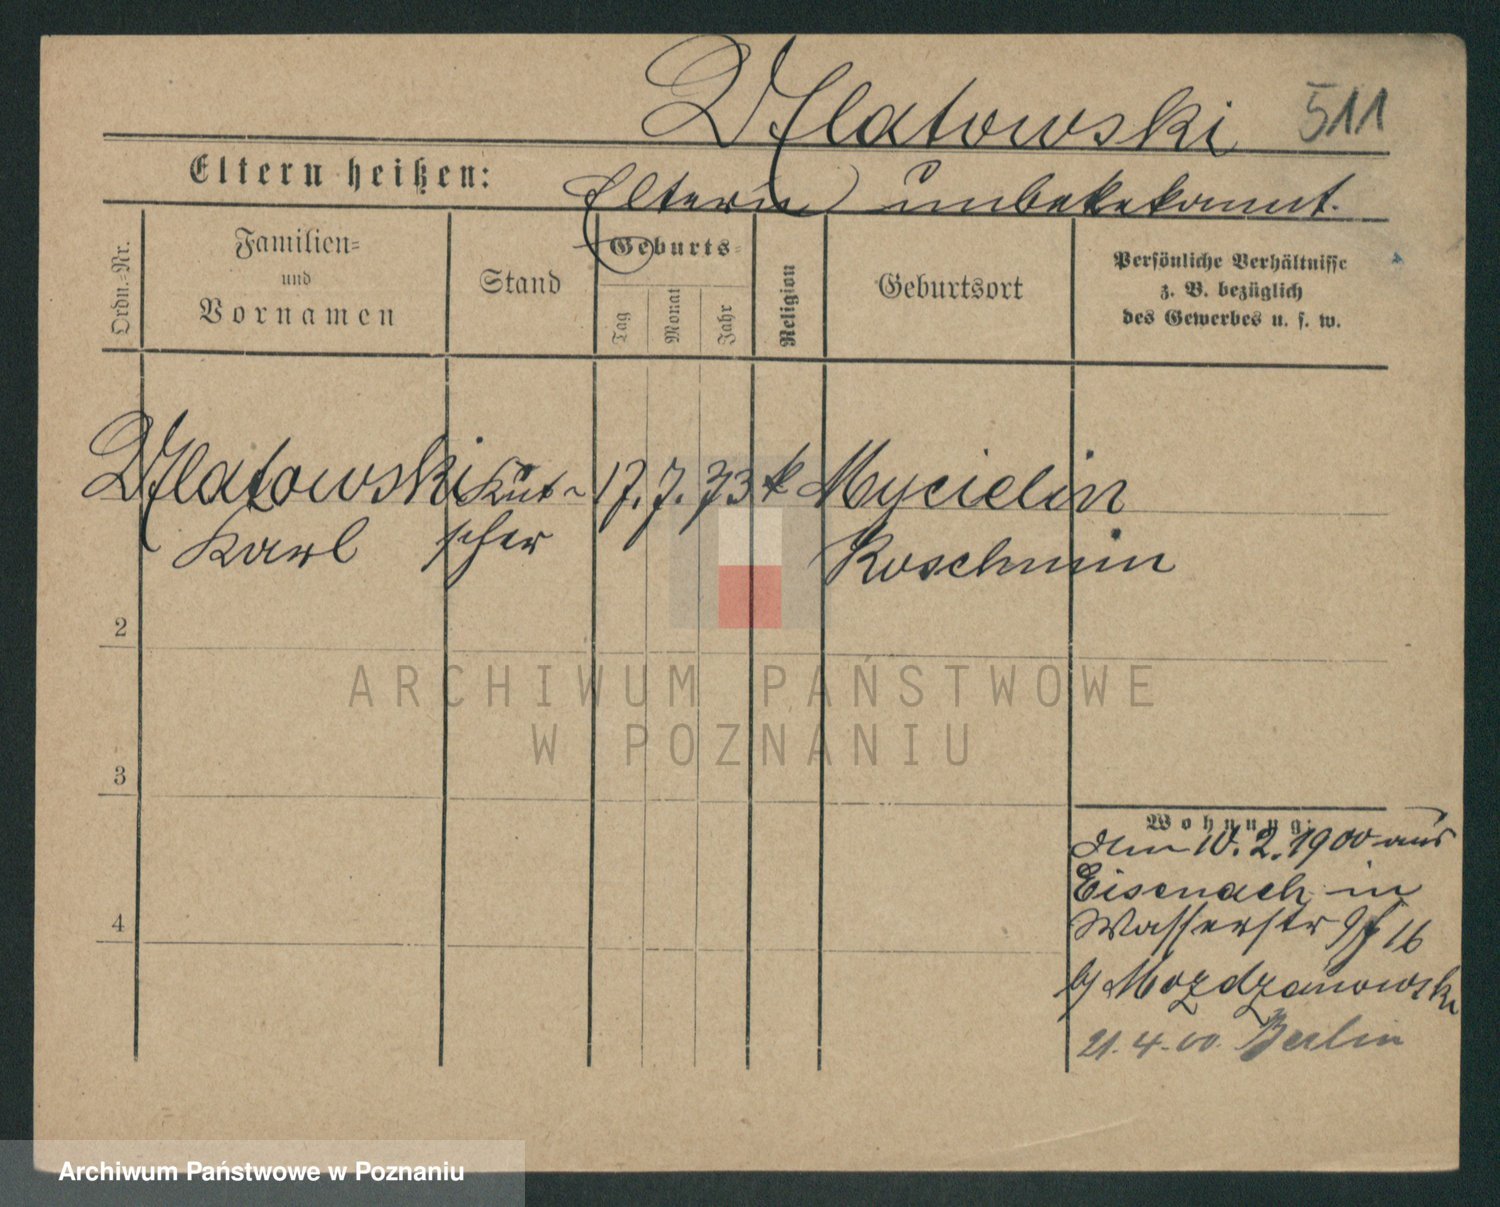 Zlatowski 511
Eltern heißen: Eltern unbekekannt.
Ordn.-Nr.
Familien-
und
Vornamen
Stand
Geburts-
Tag
Monat
Jahr
Religion
Geburtsort
Persönliche Verhältnisse
z. B. bezüglich
des Gewerbes u. s. w.
Zlatowski Kut- 17. 7. 73 k Mycielin
Karl scher Koschmin
2
ARCHIWUM PAŃSTWOWE
W POZNANIU
3
Wohnung:
den 10. 2. 1900 aus
Eisenach in
4 Wasserstr 16
b/ Mozdzanowski
21. 4. 00. Berlin
Archiwum Państwowe w Poznaniu